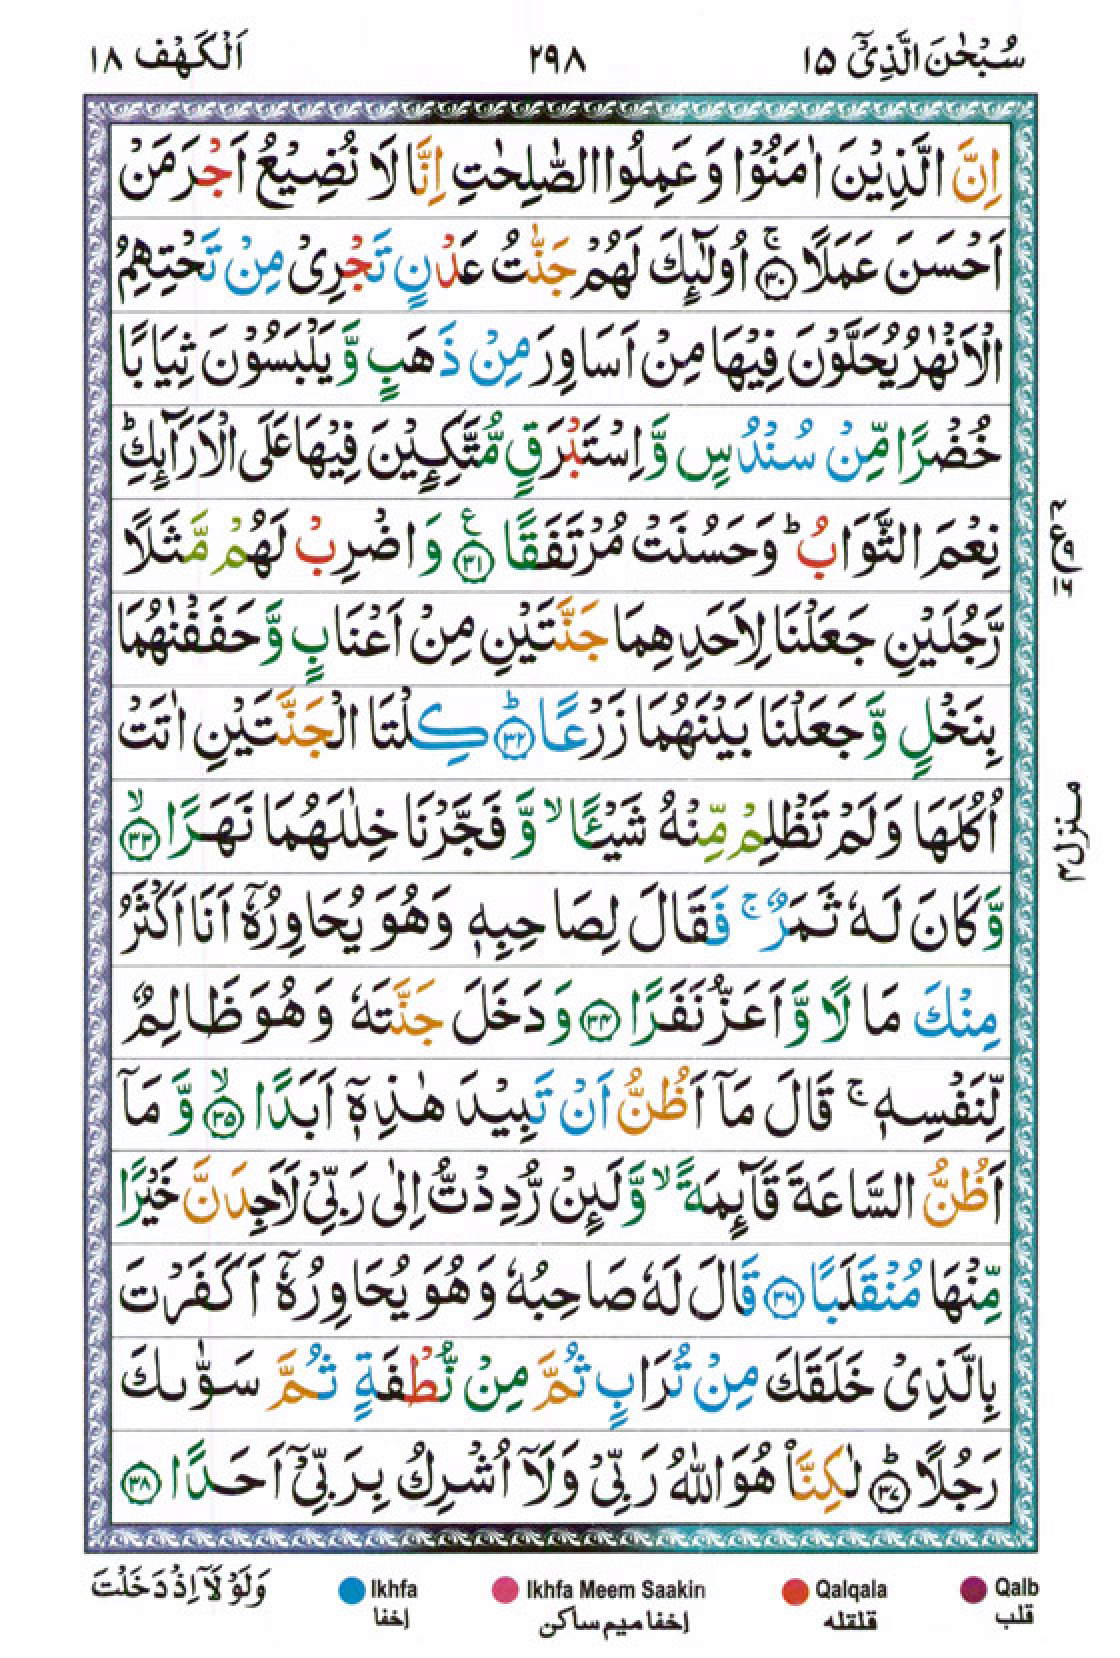 سُبْحٰنَ الَّذِیْۤ ۱۵
۲۹۸
اَلْكَهْف ۱۸
اِنَّ الَّذِیْنَ اٰمَنُوْا وَ عَمِلُوا الصّٰلِحٰتِ اِنَّا لَا نُضِیْعُ اَجْرَ مَنْ
اَحْسَنَ عَمَلًا ۚ۳۰ اُولٰٓىِٕكَ لَهُمْ جَنّٰتُ عَدْنٍ تَجْرِیْ مِنْ تَحْتِهِمُ
الْاَنْهٰرُ یُحَلَّوْنَ فِیْهَا مِنْ اَسَاوِرَ مِنْ ذَهَبٍ وَّ یَلْبَسُوْنَ ثِیَابًا
خُضْرًا مِّنْ سُنْدُسٍ وَّ اِسْتَبْرَقٍ مُّتَّكِـِٕیْنَ فِیْهَا عَلَی الْاَرَآىِٕكِؕ
نِعْمَ الثَّوَابُؕ وَ حَسُنَتْ مُرْتَفَقًا ۳۱ع وَ اضْرِبْ لَهُمْ مَّثَلًا
رَّجُلَیْنِ جَعَلْنَا لِاَحَدِهِمَا جَنَّتَیْنِ مِنْ اَعْنَابٍ وَّ حَفَفْنٰهُمَا
بِنَخْلٍ وَّ جَعَلْنَا بَیْنَهُمَا زَرْعًا ؕ۳۲ كِلْتَا الْجَنَّتَیْنِ اٰتَتْ
اُكُلَهَا وَ لَمْ تَظْلِمْ مِّنْهُ شَیْـًٔاۙ وَّ فَجَّرْنَا خِلٰلَهُمَا نَهَرًا ۙ۳۳
وَّ كَانَ لَهٗ ثَمَرٌۚ فَقَالَ لِصَاحِبِهٖ وَ هُوَ یُحَاوِرُهٗۤ اَنَا اَكْثَرُ
مِنْكَ مَالًا وَّ اَعَزُّ نَفَرًا ۳۴ وَ دَخَلَ جَنَّتَهٗ وَ هُوَ ظَالِمٌ
لِّنَفْسِهٖۚ قَالَ مَاۤ اَظُنُّ اَنْ تَبِیْدَ هٰذِهٖۤ اَبَدًا ۙ۳۵ وَّ مَاۤ
اَظُنُّ السَّاعَةَ قَآىِٕمَةًۙ وَّ لَىِٕنْ رُّدِدْتُّ اِلٰی رَبِّیْ لَاَجِدَنَّ خَیْرًا
مِّنْهَا مُنْقَلَبًا ۳۶ قَالَ لَهٗ صَاحِبُهٗ وَ هُوَ یُحَاوِرُهٗۤ اَكَفَرْتَ
بِالَّذِیْ خَلَقَكَ مِنْ تُرَابٍ ثُمَّ مِنْ نُّطْفَةٍ ثُمَّ سَوّٰىكَ
رَجُلًا ؕ۳۷ لٰكِنَّاۡ هُوَ اللّٰهُ رَبِّیْ وَ لَاۤ اُشْرِكُ بِرَبِّیْۤ اَحَدًا ۳۸
منزل۴
وَ لَوْ لَاۤ اِذْ دَخَلْتَ
Ikhfa
إخفا
Ikhfa Meem Saakin
إخفا ميم ساكن
Qalqala
قلقله
Qalb
قلب